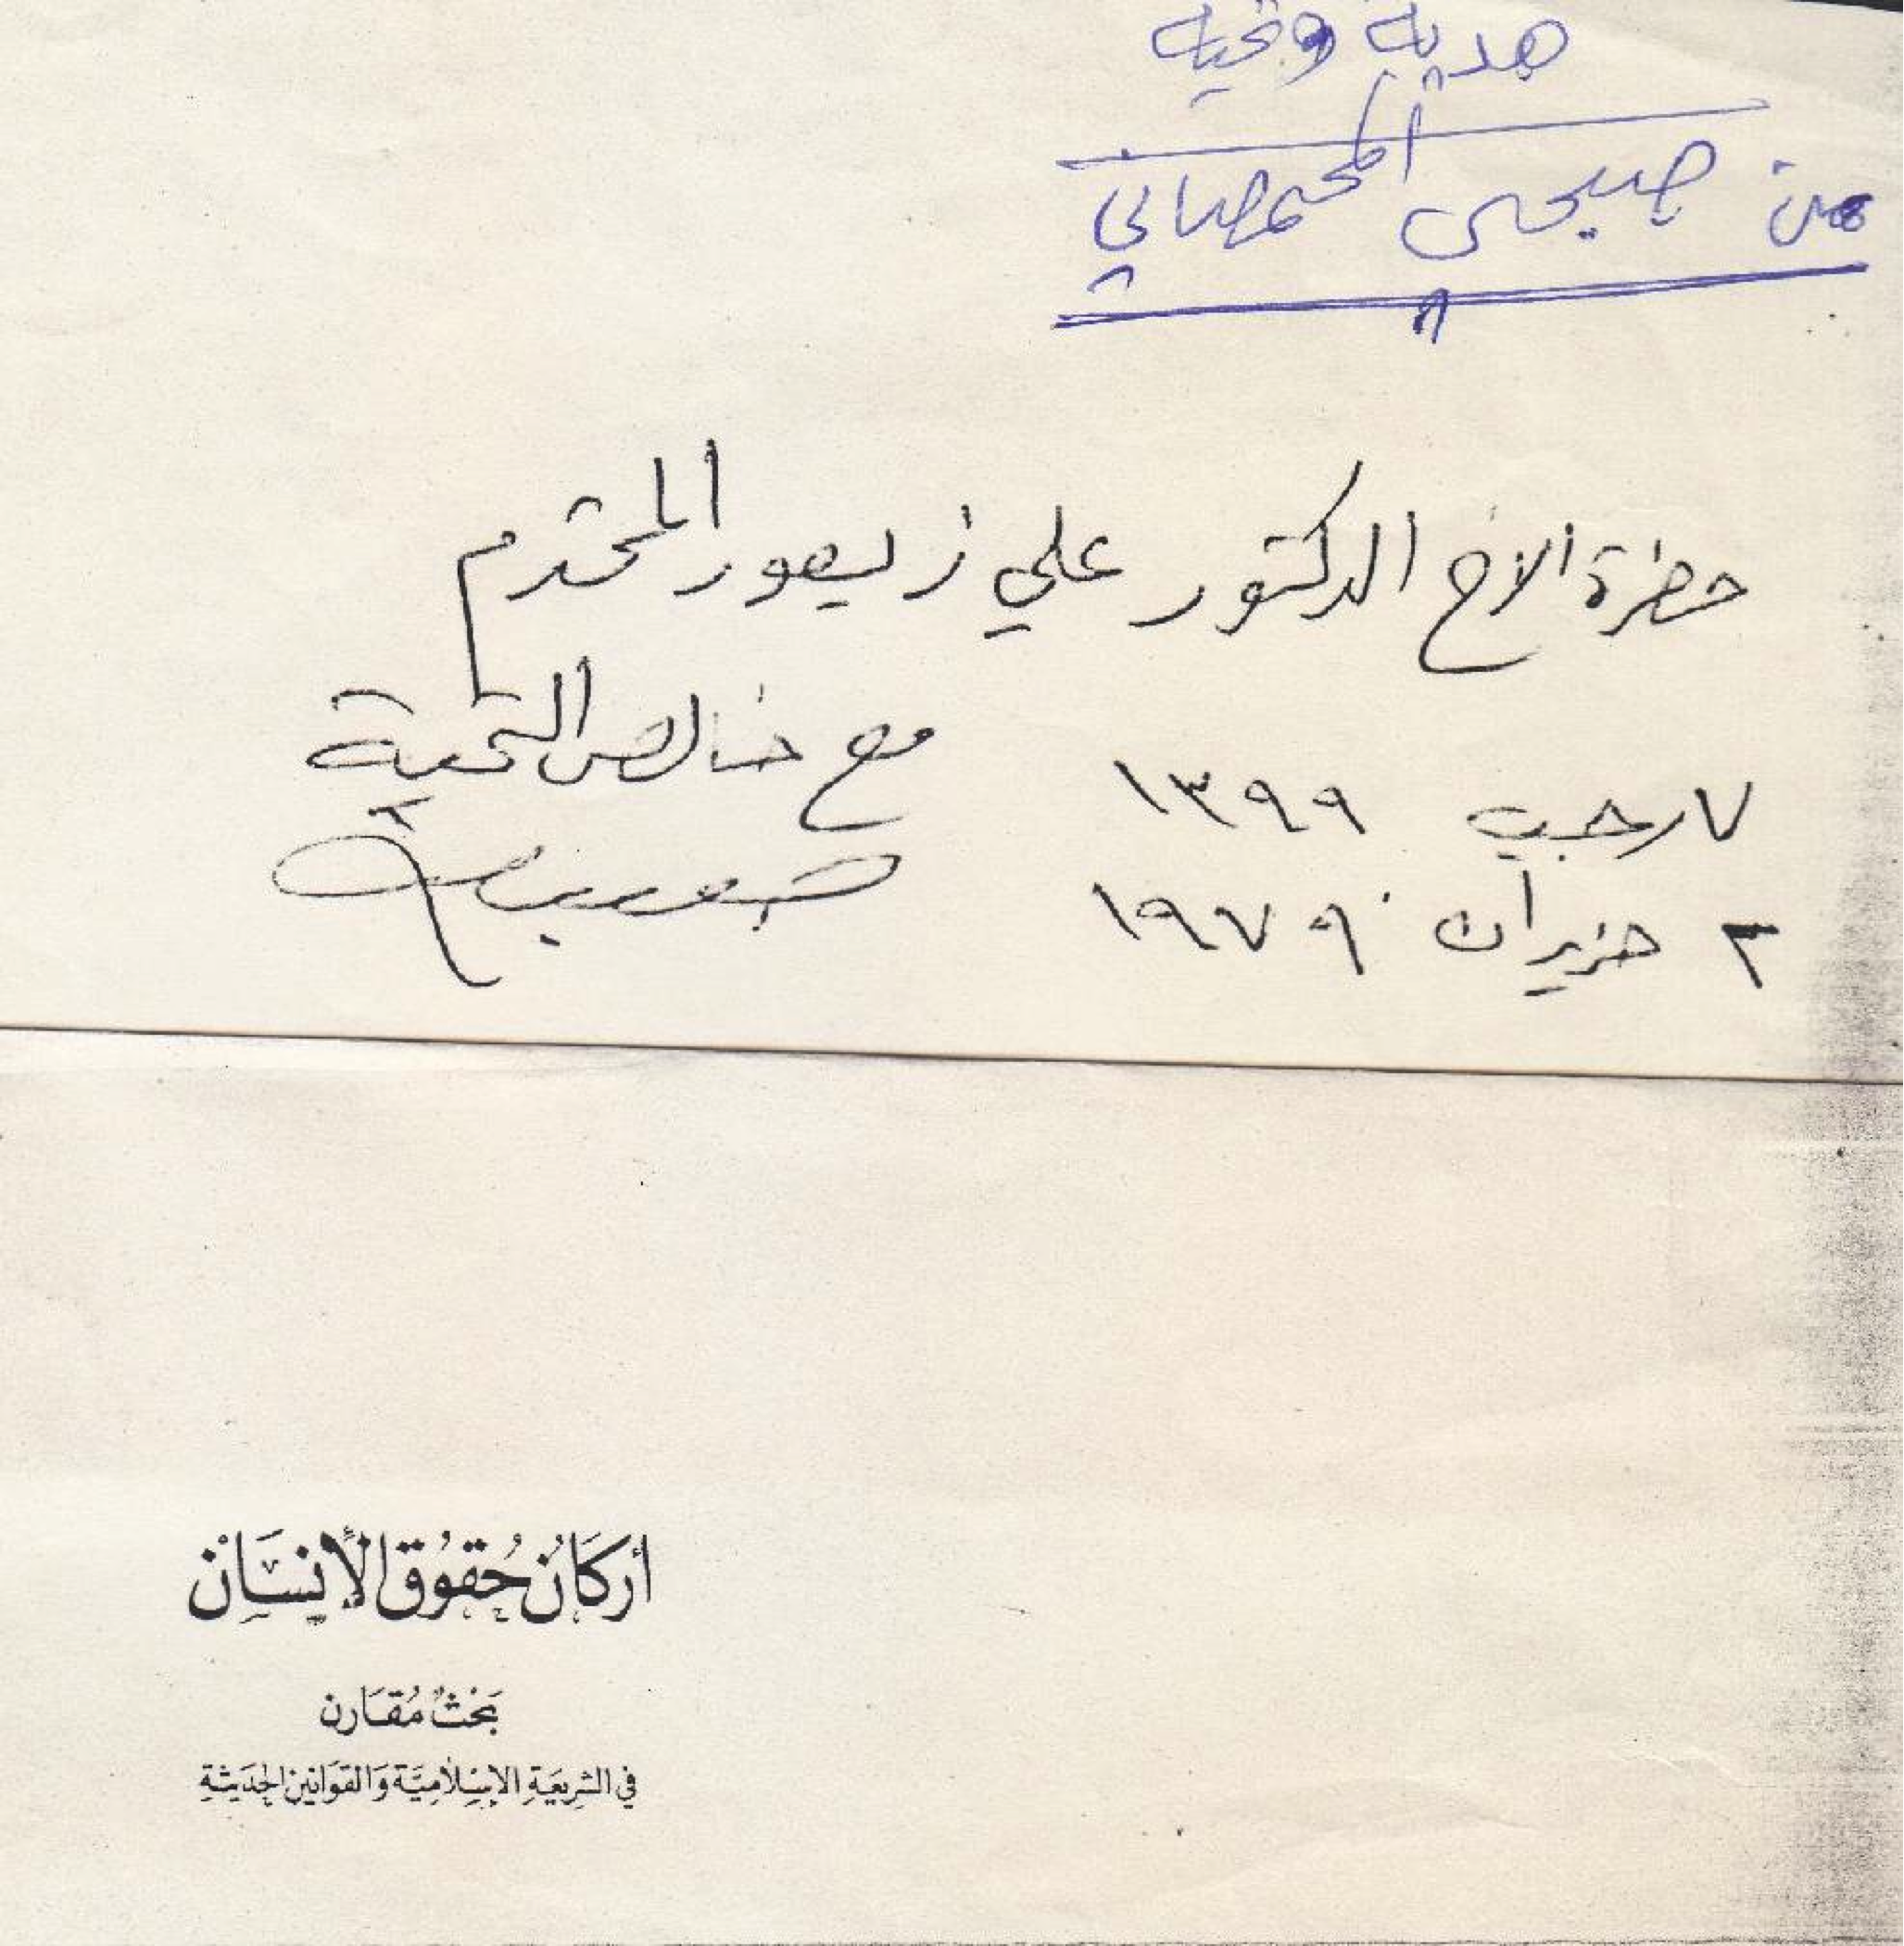 هدية وتحية
من صبحي المحمصاني
حضرة الاخ الدكتور علي زيعور المحترم
مع خالص التحية
٧ رجب ١٣٩٩
٢ حزيران ١٩٧٩
أركان حُقوُق الإنسَان
بَحْثٌ مُقَارن
في الشريعَةِ الإسْلاميَّة وَالقوَانين الحَديثةِ